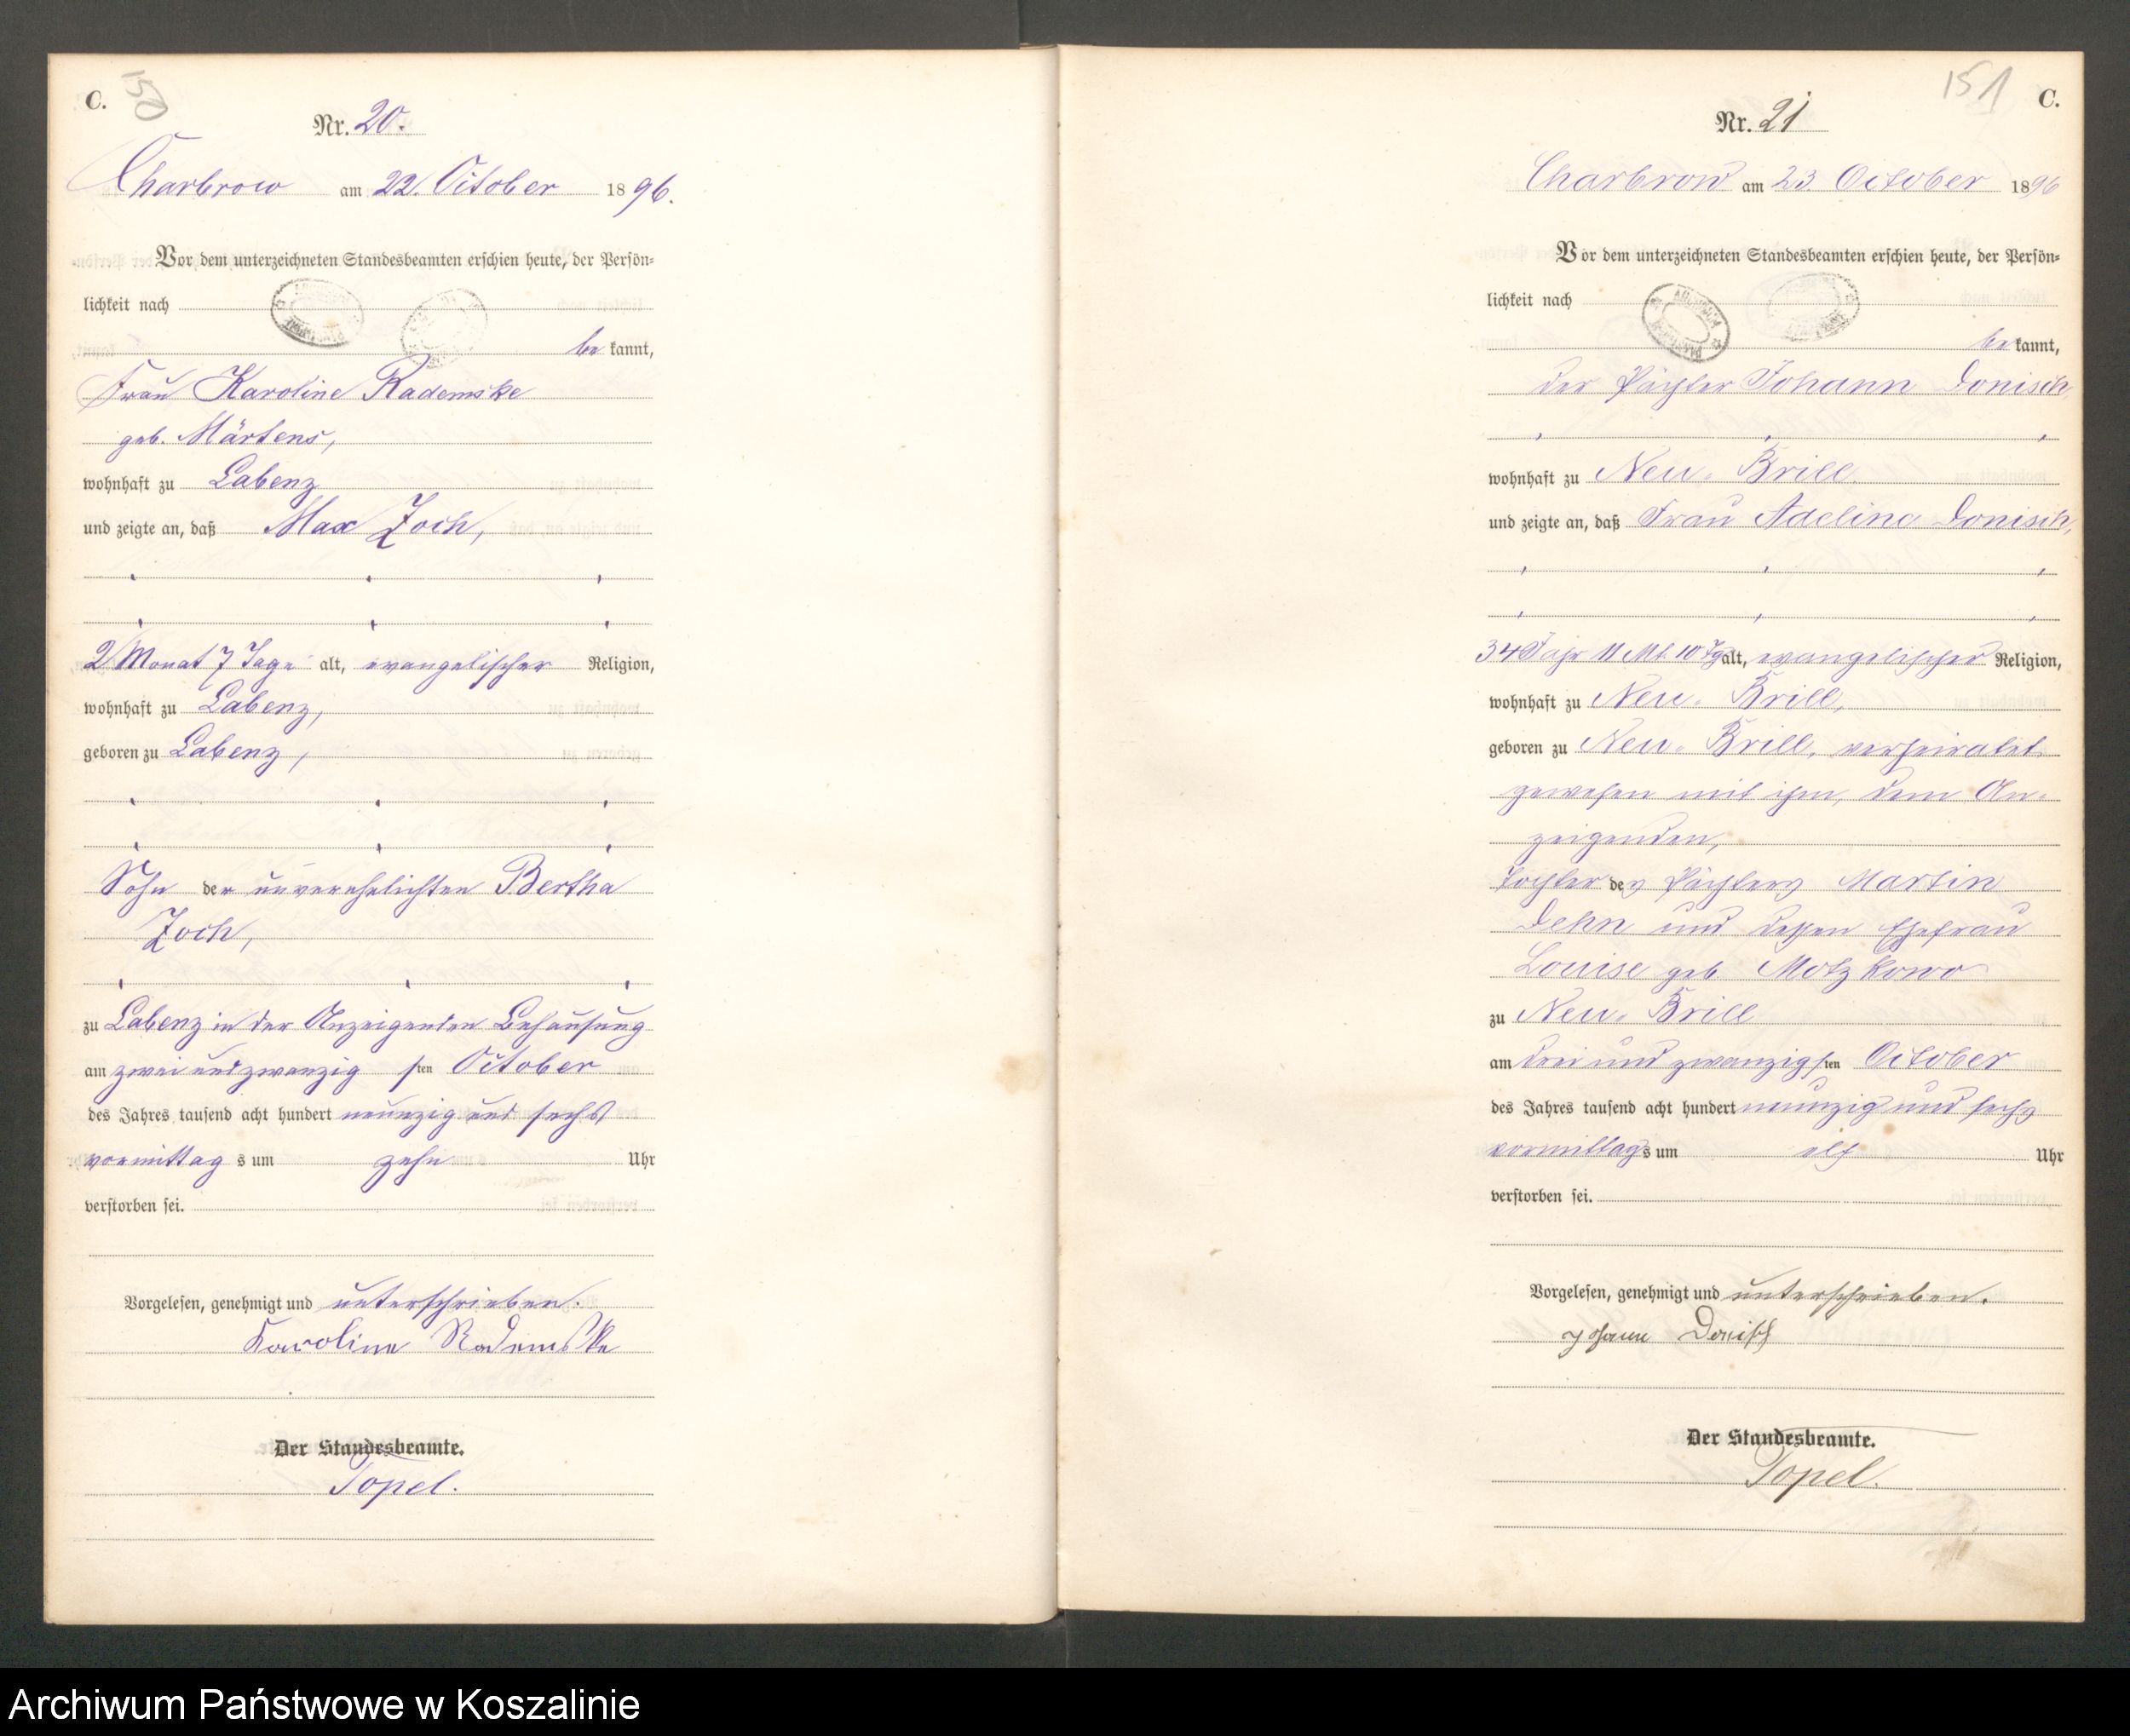 C.
150
Nr. 20.
Charbrow am 22. October 1896.
Vor dem unterzeichneten Standesbeamten erschien heute, der Persön-
lichkeit nach
be kannt,
Frau Karoline Rademske
geb. Märtens,
wohnhaft zu Labenz
und zeigte an, daß Max Zoch,
2 Monat 7 Tage alt, evangelischer Religion,
wohnhaft zu Labenz,
geboren zu Labenz,
Sohn der unverehelichten Bertha
Zoch,
zu Labenz in der Anzeigenden Behausung
am zwei und zwanzig sten October
des Jahres tausend acht hundert neunzig und sechs
vormittag s um zehn Uhr
verstorben sei.
Vorgelesen, genehmigt und unterschrieben.
Karoline Rademske
Der Standesbeamte.
Topel.
151
C.
Nr. 21
Charbrow am 23. October 1896
Vor dem unterzeichneten Standesbeamten erschien heute, der Persön-
lichkeit nach
be kannt,
der Pächter Johann Donisch,
wohnhaft zu Neu-Brill.
und zeigte an, daß Frau Adeline Donisch,
34 Jahr 11 Mt. 10 Tg alt, evangelischer Religion,
wohnhaft zu Neu-Brill,
geboren zu Neu-Brill, verheiratet
gewesen mit ihm, dem An-
zeigenden,
Tochter des Pächters Martin
Dehn und dessen Ehefrau
Louise geb Motzkowo
zu Neu-Brill
am drei und zwanzig sten October
des Jahres tausend acht hundert neunzig und sechs
vormittags um elf Uhr
verstorben sei.
Vorgelesen, genehmigt und unterschrieben.
Johann Donisch
Der Standesbeamte.
Topel.
Archiwum Państwowe w Koszalinie